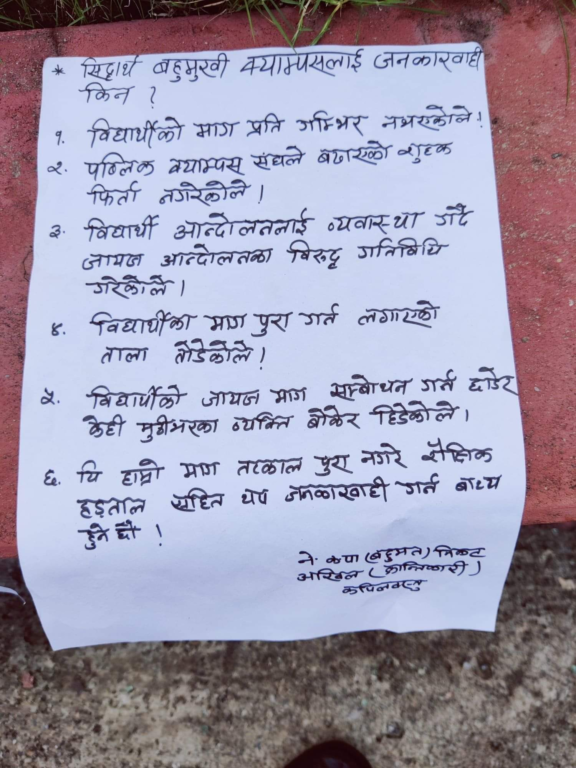 * सिद्धार्थ बहुमुखी क्याम्पसलाई जनकारवाही
किन ?
१. विद्यार्थीको माग प्रति गम्भिर नभएकोले!
२. पब्लिक क्याम्पस संघले बढाएको शुल्क
फिर्ता नगरेकोले!
३. विद्यार्थी आन्दोलनलाई व्यवास्था गर्दै
जायज आन्दोलनका विरुद्ध गतिविधि
गरेकोले।
४. विद्यार्थीका माग पुरा गर्न लगाएको
ताला तोडेकोले!
५. विद्यार्थीको जायज माग सम्बोधन गर्न छाडेर
केही मुठीभरका व्यक्ति बोकेर हिडेकोले।
६. यि हाम्रो माग तत्काल पुरा नगरे शैक्षिक
हड्ताल सहित थप जनकारवाही गर्न बाध्य
हुने छौं !
ने. कपा (बहुमत) निकट
अखिल (क्रान्तिकारी)
कपिलवस्तु